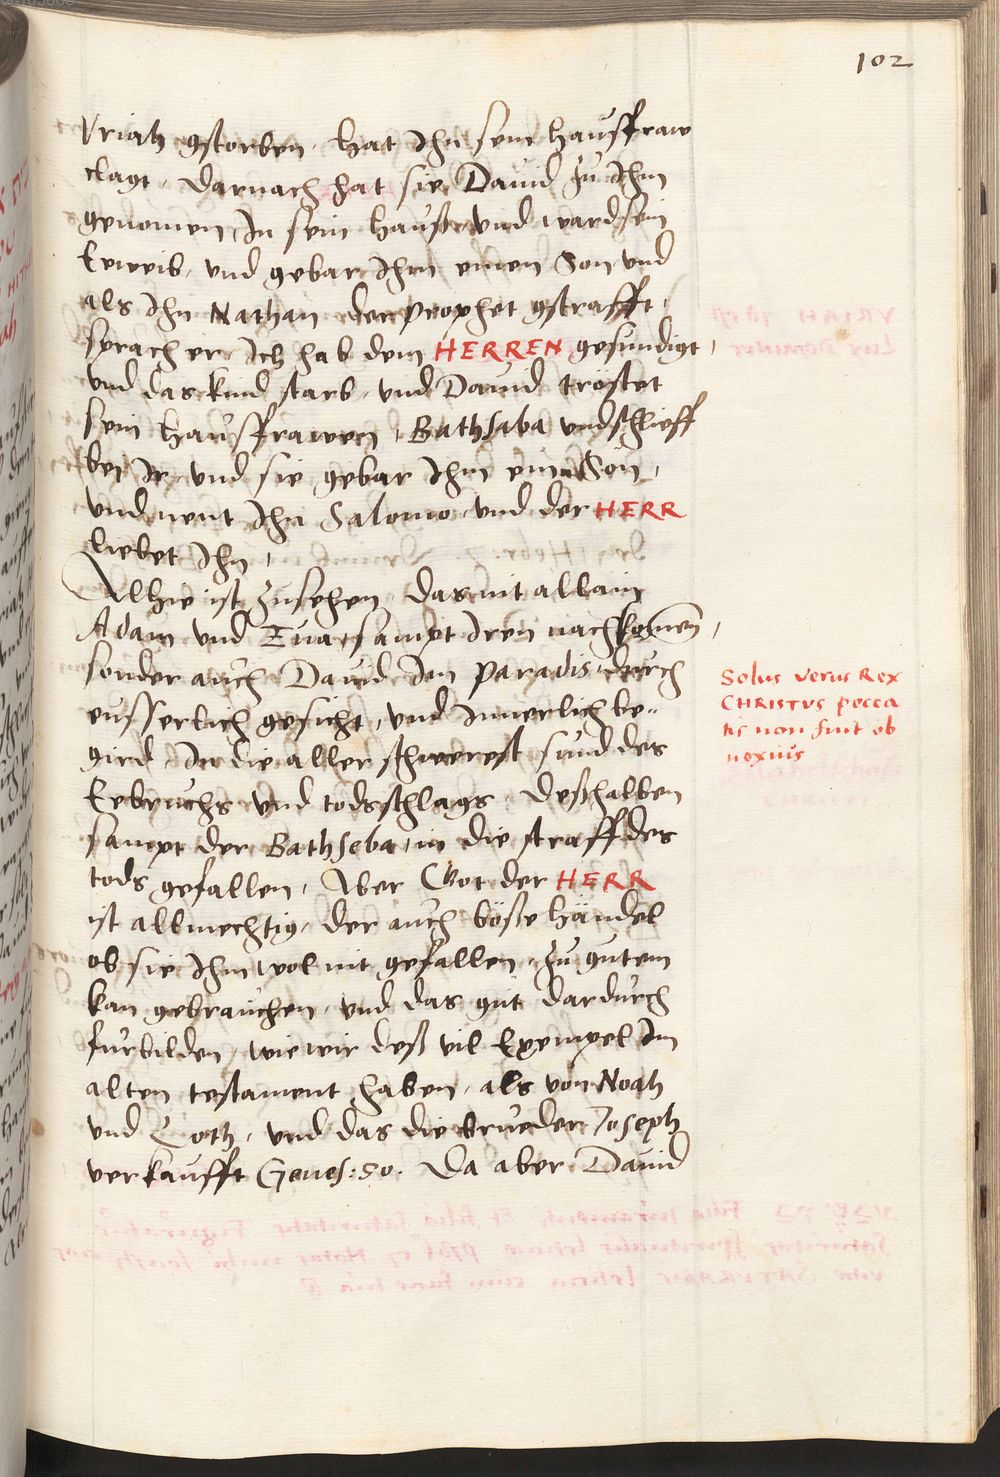 102
Vriah gstorben, hat Ihn sein haussfraw
clagt, darnach hat sie Dauid zu Ihm
genomen, In sein hauß vnd ward sein
Eeweib, vnd gebar Ihm einen Son, vnd
als Ihn Nathan der prophet gstrafft,
sprach er, Ich hab dem HERREN gesundigt,
vnd das kind starb, vnd Dauid tröstet
sein haussfrawen, Bathsaba vnd schlieff
bey Ir, vnd sie gebar Ihm ein Son,
vnd nent Ihn Salomo, vnd der HERR
liebet Ihn,
Alhie ist zusehen, das nit allain
Adam vnd Eua, sampt Iren nachkomen,
sonder auch Dauid den paradis, durch
eusserlich gesicht, vnd Innerlich be-
gird, In die aller schwerest sund des
Eebruchs vnd todschlags, deßhalben
sampt der Bathseba, in die straff des
tods gefallen, Aber Got der HERR
ist allmechtig, der auch böße händel
ob sie Ihm wol nit gefallen, zu gutem
kan gebrauchen, vnd das gut dardurch
furbilden, wie wir deß vil Exempel Im
alten testament haben, als von Noah
vnd Loth, vnd das die brueder Joseph
verkaufft Genes: 50. Da aber Dauid
Solus verus Rex
CHRISTVS pecca
tis non fuit ob
noxius